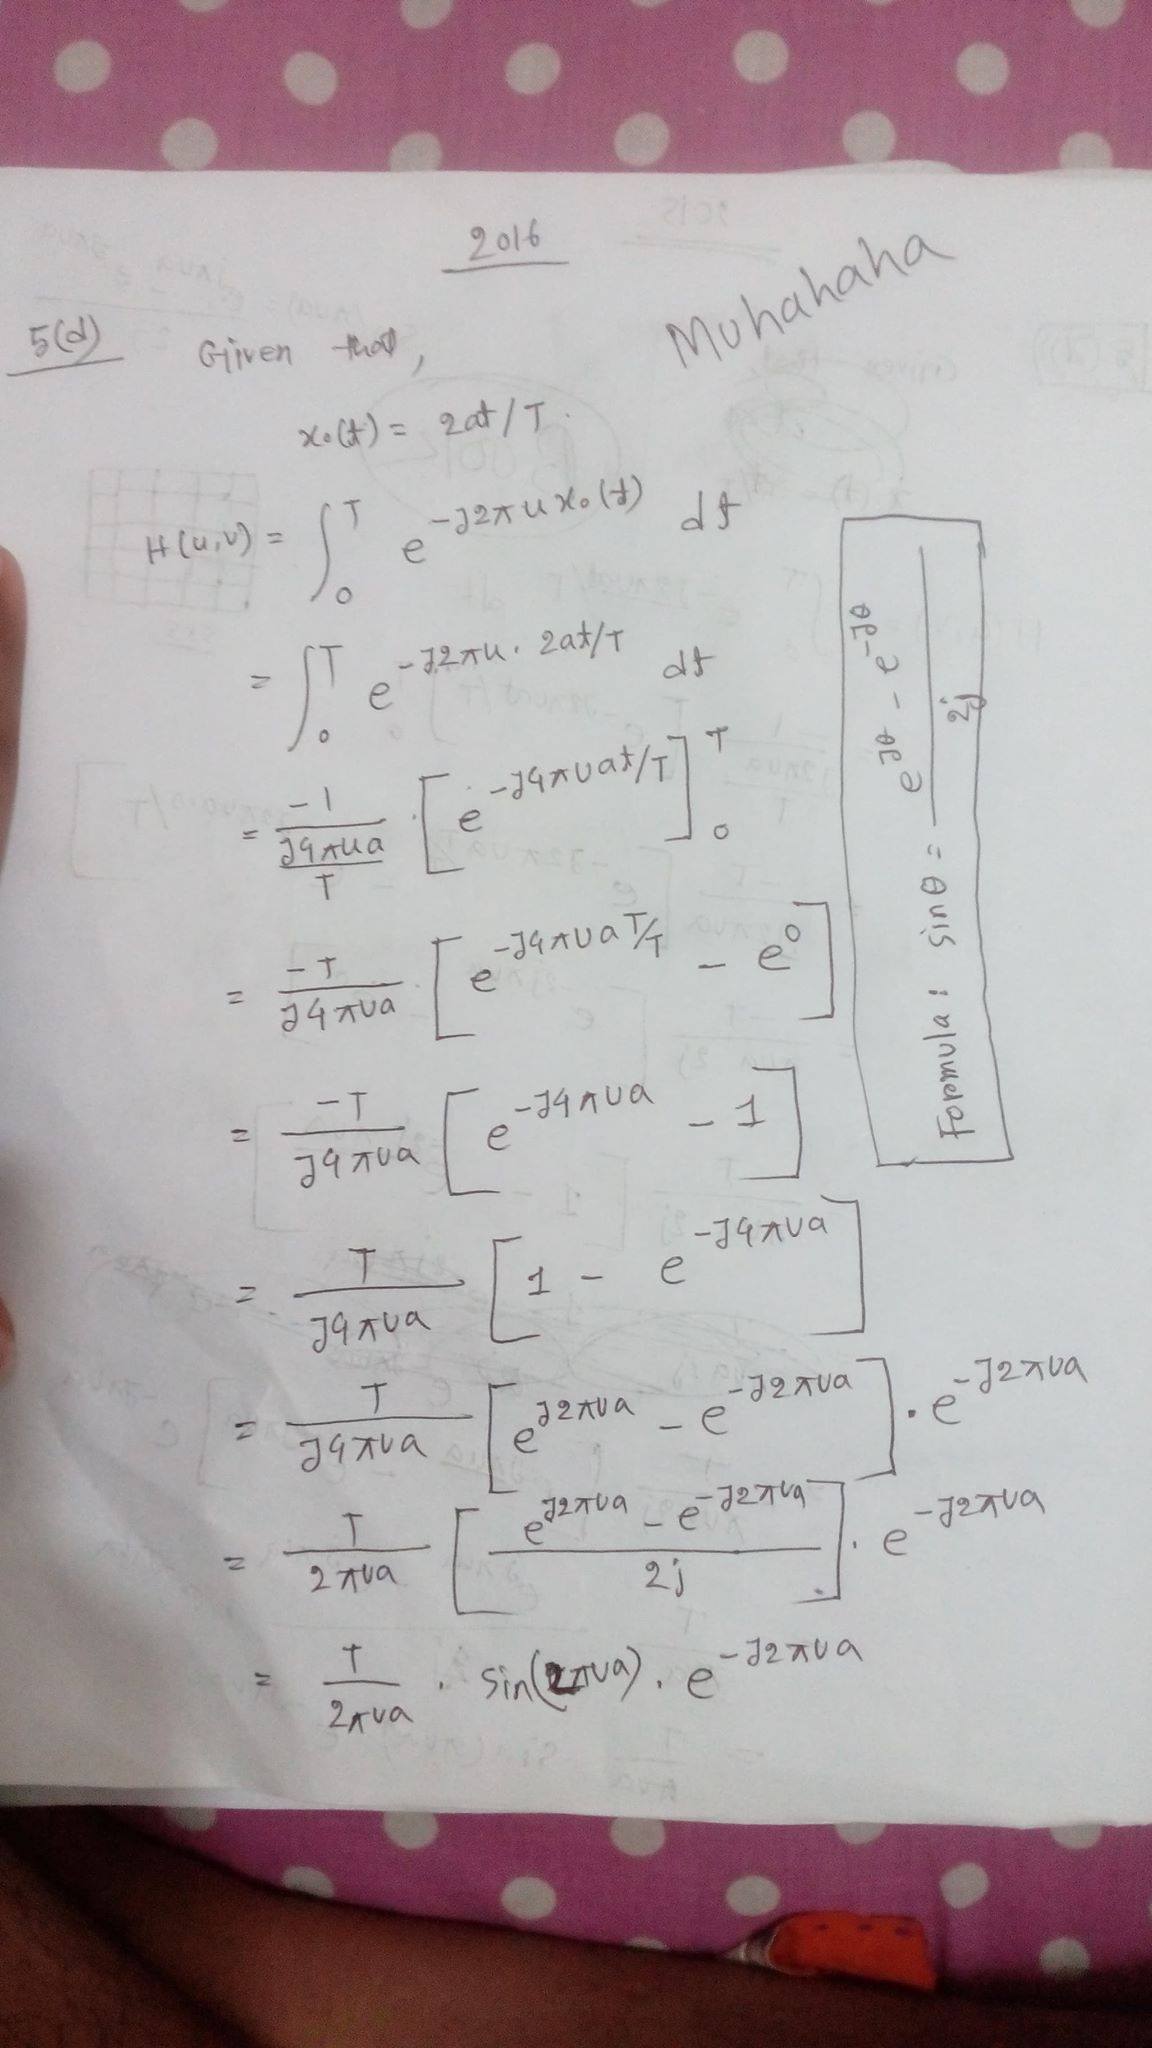 2016
Muhahaha
5(d) Given that,
x₀(t) = 2at/T.
H(u,v) = ∫₀ᵀ e^(-J2πu x₀(t)) dt
= ∫₀ᵀ e^(-J2πu. 2at/T) dt
= -1/(J4πua/T) . [e^(-J4πuat/T)]₀ᵀ
= -T/(J4πua) [e^(-J4πuaT/T) - e⁰]
= -T/(J4πua) [e^(-J4πua) - 1]
= T/(J4πua) [1 - e^(-J4πua)]
= T/(J4πua) [e^(J2πua) - e^(-J2πua)] . e^(-J2πua)
= T/(2πua) [(e^(J2πua) - e^(-J2πua))/2j] . e^(-J2πua)
= T/(2πua) . sin(2πua) . e^(-J2πua)
Formula: sinθ = (e^(Jθ) - e^(-Jθ))/2j